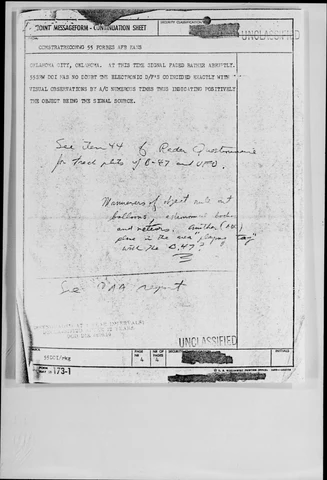 JOINT MESSAGEFORM - CONTINUATION SHEET
SECURITY CLASSIFICATION
COMSTRATRECONWG 55 FORBES AFB KANS
OKLAHOMA CITY, OKLAHOMA. AT THIS TIME SIGNAL FADED RATHER ABRUPTLY.
55SRW DOI HAS NO DOUBT THE ELECTRONIC D/F'S COINCIDED EXACTLY WITH
VISUAL OBSERVATIONS BY A/C NUMEROUS TIMES THUS INDICATING POSITIVELY
THE OBJECT BEING THE SIGNAL SOURCE.
See Item 44 of Radar Questionnaire
for track plots of B-47 and UFO.
Maneuvers of object rule out
balloons, astronomical bodies
and meteors. Another
plane in the area "playing tag"
with the B-47?
See report
UNCLASSIFIED
55DOI/rkg
PAGE NR 4
NR OF PAGES 4
SECURITY
INITIALS
FORM 173-1